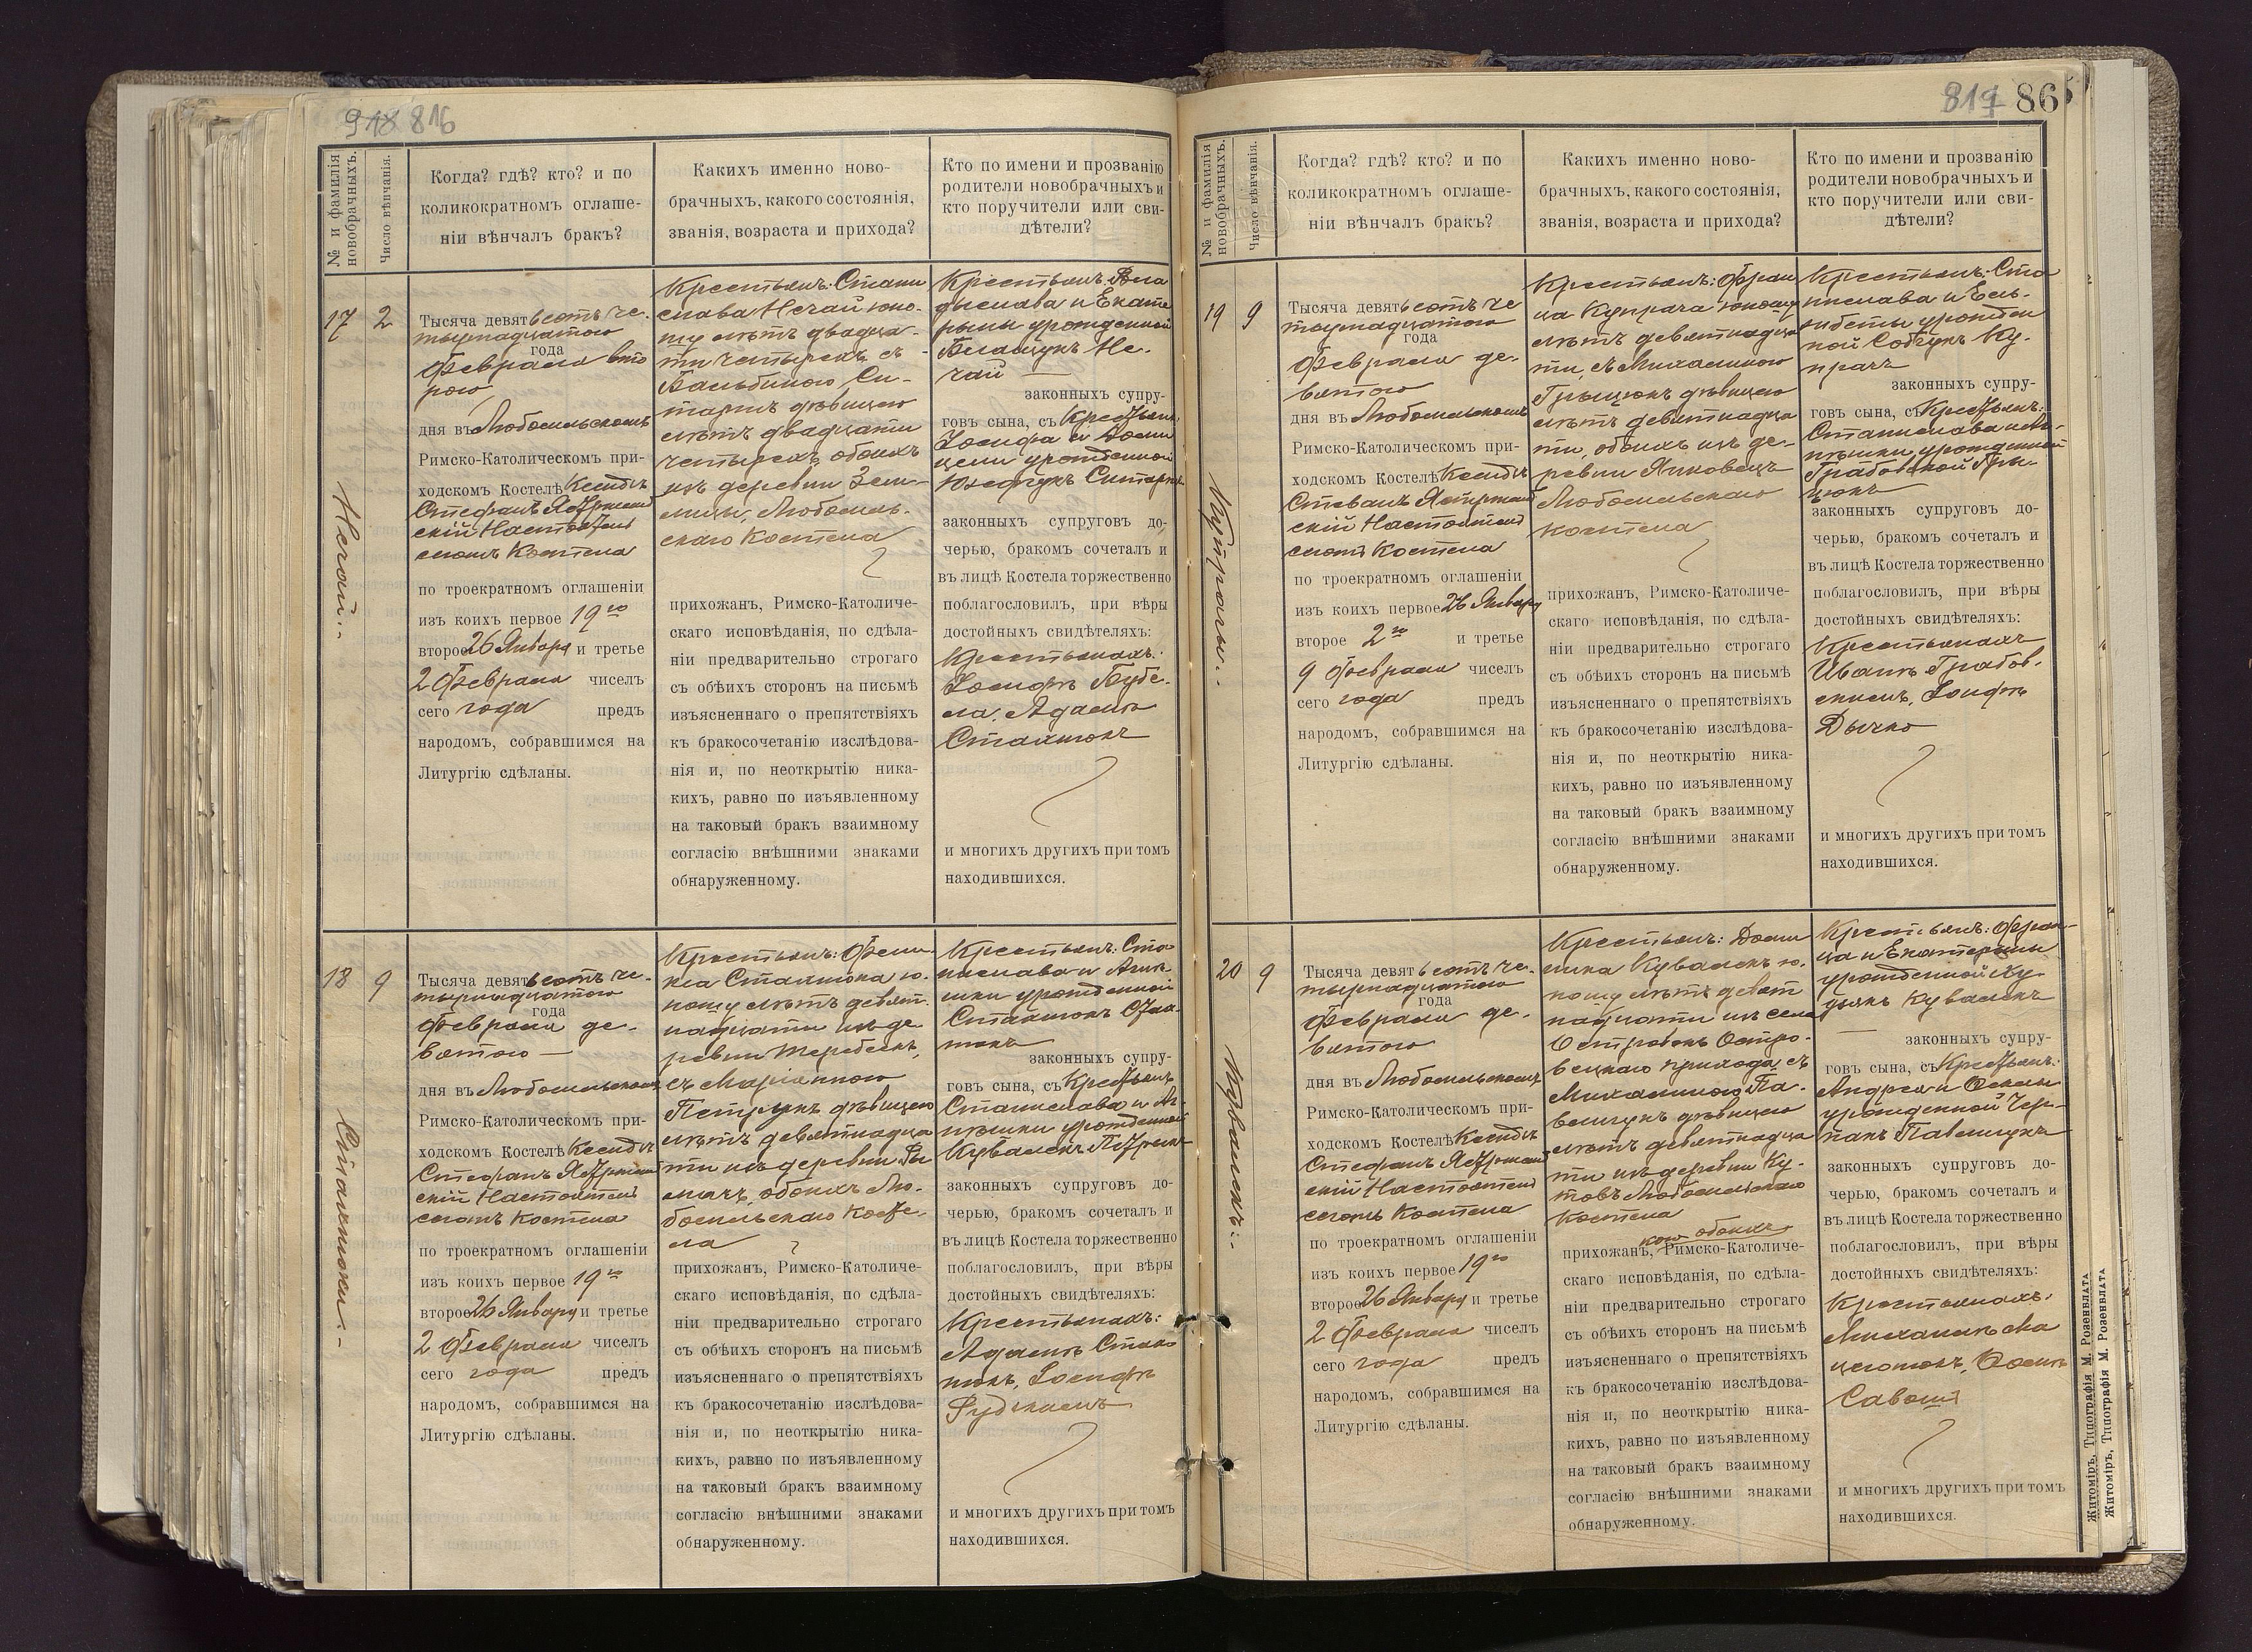 918 816
№ и фамилія новобрачныхъ.
Число вѣнчанія.
Когда? гдѣ? кто? и по
коликократномъ оглаше-
ніи вѣнчалъ бракъ?
Какихъ именно ново-
брачныхъ, какого состоянія,
званія, возраста и прихода?
Кто по имени и прозванію
родители новобрачныхъ и
кто поручители или сви-
дѣтели?
17
2
Нечай
Тысяча девятьсотъ че-
тырнадцатого
года
Февраля вто
рого
дня въ Любомльскомъ
Римско-Католическомъ при-
ходскомъ Костелѣ Ксендзъ
Стефанъ Ястржем
скій Настоятел
сего Костела
по троекратномъ оглашеніи
изъ коихъ первое 19го
второе 26 Января и третье
2 Февраля чиселъ
сего года предъ
народомъ, собравшимся на
Литургію сдѣланы.
Крестьянъ: Стани
слава Нечай юно-
шу лѣтъ двадца-
ти четырехъ съ
Бальбиною Си-
тарчъ дѣвицею
лѣтъ двадцати
четырехъ, обоихъ
изъ деревни Зем-
лицы, Любомль-
скаго Костела
прихожанъ, Римско-Католиче-
скаго исповѣданія, по сдѣла-
ніи предварительно строгаго
съ обѣихъ сторонъ на письмѣ
изъясненнаго о препятствіяхъ
къ бракосочетанію изслѣдова-
нія и, по неоткрытію ника-
кихъ, равно по изъявленному
на таковый бракъ взаимному
согласію внѣшними знаками
обнаруженному.
Крестьянъ: Вла
дислава и Екате
рины урожденной
Нe-
чай
законныхъ супру-
говъ сына, съ Крестьянъ
Іосифа и Доми
цели урожденной
Юзефчукъ Ситарчъ
законныхъ супруговъ до-
черью, бракомъ сочеталъ и
въ лицѣ Костела торжественно
поблагословилъ, при вѣры
достойныхъ свидѣтеляхъ:
Крестьянахъ:
Іосифъ Бубе-
ла, Адамъ
Стахнюкъ
и многихъ другихъ при томъ
находившихся.
18
9
Стахнюкъ
Тысяча девятьсотъ че-
тырнадцатого
года
Февраля де-
вятого
дня въ Любомльскомъ
Римско-Католическомъ при-
ходскомъ Костелѣ Ксендзъ
Стефанъ Ястржем
скій Настоятел
сего Костела
по троекратномъ оглашеніи
изъ коихъ первое 19го
второе 26 Января и третье
2 Февраля чиселъ
сего года предъ
народомъ, собравшимся на
Литургію сдѣланы.
Крестьянъ: Фели
кса Стахнюка ю-
ношу лѣтъ девят-
надцати изъ де-
ревни Теребеекъ,
съ Маріанною
Петрукъ дѣвицею
лѣтъ девятнадца
ти изъ деревни
обоихъ Лю-
бомльскаго Косте-
ла
прихожанъ, Римско-Католиче-
скаго исповѣданія, по сдѣла-
ніи предварительно строгаго
съ обѣихъ сторонъ на письмѣ
изъясненнаго о препятствіяхъ
къ бракосочетанію изслѣдова-
нія и, по неоткрытію ника-
кихъ, равно по изъявленному
на таковый бракъ взаимному
согласію внѣшними знаками
обнаруженному.
Крестьянъ: Ста
нислава и Агнѣ-
шки урожденной
Стахнюкъ
законныхъ супру-
говъ сына, съ Крестьянъ
Станислава и Аг-
нѣшки урожденной
Кувалекъ Петрукъ
законныхъ супруговъ до-
черью, бракомъ сочеталъ и
въ лицѣ Костела торжественно
поблагословилъ, при вѣры
достойныхъ свидѣтеляхъ:
Крестьянахъ:
Адамъ Стах
нюкъ, Іосифъ
и многихъ другихъ при томъ
находившихся.
817 86
№ и фамилія новобрачныхъ.
Число вѣнчанія.
Когда? гдѣ? кто? и по
коликократномъ оглаше-
ніи вѣнчалъ бракъ?
Какихъ именно ново-
брачныхъ, какого состоянія,
званія, возраста и прихода?
Кто по имени и прозванію
родители новобрачныхъ и
кто поручители или сви-
дѣтели?
19
9
Тысяча девятьсотъ че
тырнадцатого
года
Февраля де-
вятого
дня въ Любомльскомъ
Римско-Католическомъ при-
ходскомъ Костелѣ Ксендзъ
Стефанъ Ястржем
скій Настоятел
сего Костела
по троекратномъ оглашеніи
изъ коихъ первое 26 Января
второе 2го и третье
9 Февраля чиселъ
сего года предъ
народомъ, собравшимся на
Литургію сдѣланы.
Крестьянъ: Фран
ца Купрача юношу
лѣтъ девятнадца
ти, съ Михалиною
Грыцюкъ дѣвицею
лѣтъ девятнадца
ти, обоихъ изъ де-
ревни Яковецъ
Любомльскаго
Костела
прихожанъ, Римско-Католиче-
скаго исповѣданія, по сдѣла-
ніи предварительно строгаго
съ обѣихъ сторонъ на письмѣ
изъясненнаго о препятствіяхъ
къ бракосочетанію изслѣдова-
нія и, по неоткрытію ника-
кихъ, равно по изъявленному
на таковый бракъ взаимному
согласію внѣшними знаками
обнаруженному.
Крестьянъ: Ста
нислава и Ель-
жбеты урожден
ной Собчукъ Ку-
прачъ
законныхъ супру-
говъ сына, съ Крестьянъ:
Станислава и Аг-
нѣшки урожденной
Грабовской Гры-
цюкъ
законныхъ супруговъ до-
черью, бракомъ сочеталъ и
въ лицѣ Костела торжественно
поблагословилъ, при вѣры
достойныхъ свидѣтеляхъ:
Крестьянахъ
Иванъ Грабов-
скимъ, Іосифъ
Дычко
и многихъ другихъ при томъ
находившихся.
20
9
Кувалекъ
Тысяча девятьсотъ че-
тырнадцатого
года
Февраля де-
вятого
дня въ Любомльскомъ
Римско-Католическомъ при-
ходскомъ Костелѣ Ксендзъ
Стефанъ Ястржем
скій Настоятел
сего Костела
по троекратномъ оглашеніи
изъ коихъ первое 19го
второе 26 Января и третье
2 Февраля чиселъ
сего года предъ
народомъ, собравшимся на
Литургію сдѣланы.
Крестьянъ: Доми
ника Кувалекъ ю-
ношу лѣтъ девят
надцати изъ села
Островокъ Остро-
вецкаго прихода, съ
Михалиною Па-
влищукъ дѣвицею
лѣтъ девятнадца
ти изъ деревни Ку-
товъ Любомльскаго
Костела
обоихъ
прихожанъ, Римско-Католиче-
скаго исповѣданія, по сдѣла-
ніи предварительно строгаго
съ обѣихъ сторонъ на письмѣ
изъясненнаго о препятствіяхъ
къ бракосочетанію изслѣдова-
нія и, по неоткрытію ника-
кихъ, равно по изъявленному
на таковый бракъ взаимному
согласію внѣшними знаками
обнаруженному.
Крестьянъ: Фран-
ца и Екатерины
урожденной Ку-
Кувалекъ
законныхъ супру-
говъ сына, съ Крестьянъ:
Андрея и
урожденной Чер-
накъ Павлищукъ
законныхъ супруговъ до-
черью, бракомъ сочеталъ и
въ лицѣ Костела торжественно
поблагословилъ, при вѣры
достойныхъ свидѣтеляхъ:
Крестьянахъ:
Михаилъ Ма
и многихъ другихъ при томъ
находившихся.
Житоміръ, Типографія М. Розенблата
Житоміръ, Типографія М. Розенблата